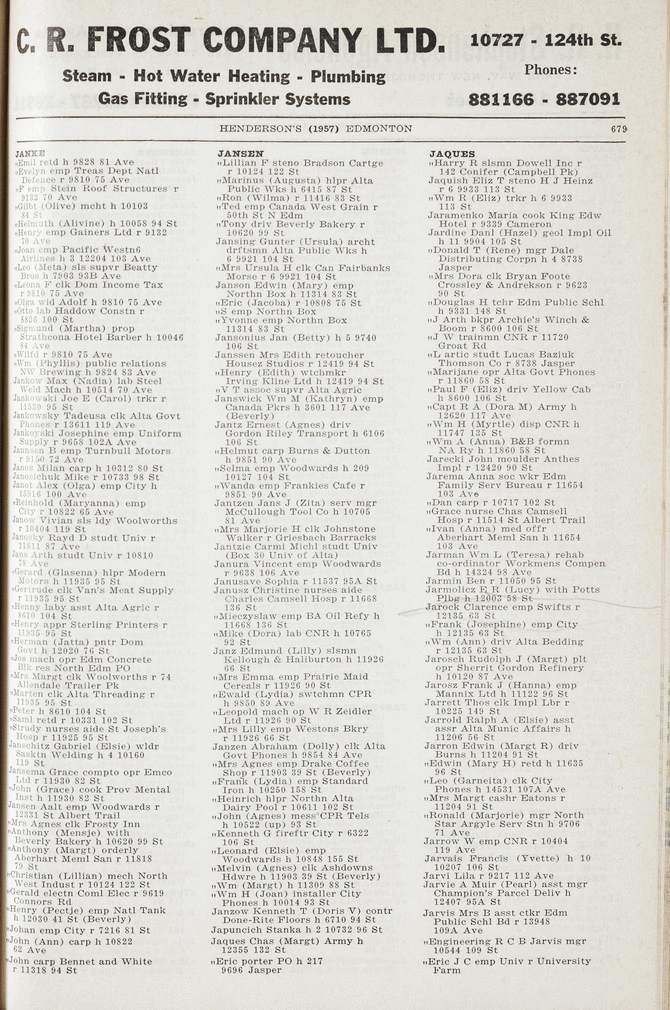 C. R. FROST COMPANY LTD.
10727 - 124th St.
Steam - Hot Water Heating - Plumbing
Gas Fitting - Sprinkler Systems
Phones:
881166 - 887091
HENDERSON'S (1957) EDMONTON
679
JANKE
"Emil retd h 9828 81 Ave
"Evelyn emp Treas Dept Natl
Defence r 9810 75 Ave
"F emp Stein Roof Structures r
9132 70 Ave
"Gilbt (Olive) mcht h 10103
84 St
"Helmuth (Alivine) h 10058 94 St
"Henry emp Gainers Ltd r 9132
70 Ave
"Joan emp Pacific Westn6
Airlines h 3 12204 103 Ave
"Leo (Meta) sls supvr Beatty
Bros h 7903 93B Ave
"Leona F clk Dom Income Tax
r 9810 75 Ave
"Olga wid Adolf h 9810 75 Ave
"Otto lab Haddow Constn r
8826 100 St
"Sigmund (Martha) prop
Strathcona Hotel Barber h 10046
84 Ave
"Wilfd r 9810 75 Ave
"Wm (Phyllis) public relations
NW Brewing h 9824 83 Ave
Jankow Max (Nadia) lab Steel
Weld Mach h 10514 70 Ave
Jankowski Joe E (Carol) trkr r
11530 95 St
Jankowsky Tadeusa clk Alta Govt
Phones r 13611 119 Ave
Jankoyski Josephine emp Uniform
Supply r 9658 102A Ave
Jannsen B emp Turnbull Motors
r 9150 72 Ave
Janos Milan carp h 10312 80 St
Janosichuk Mike r 10733 98 St
Janot Alex (Olga) emp City h
15916 100 Ave
"Reinhold (Maryanna) emp
City r 10822 65 Ave
Janow Vivian sls ldy Woolworths
r 10404 119 St
Janosky Rayd D studt Univ r
11811 87 Ave
Jans Arth studt Univ r 10810
78 Ave
"Gerard (Glasena) hlpr Modern
Motors h 11935 95 St
"Gertrude clk Van's Meat Supply
r 11935 95 St
"Henny laby asst Alta Agric r
8610 104 St
"Henry appr Sterling Printers r
11935 95 St
"Herman (Jatta) pntr Dom
Govt h 12020 76 St
"Jos mach opr Edm Concrete
Blk res North Edm PO
"Mrs Margt clk Woolworths r 74
Allendale Trailer Pk
"Marten clk Alta Threading r
11935 95 St
"Peter h 8610 104 St
"Saml retd r 10331 102 St
"Strudy nurses aide St Joseph's
Hosp r 11925 95 St
Janschitz Gabriel (Elsie) wldr
Sasktn Welding h 4 10160
119 St
Jansema Grace compto opr Emco
Ltd r 11930 82 St
"John (Grace) cook Prov Mental
Inst h 11930 82 St
Jansen Aalt emp Woodwards r
12331 St Albert Trail
"Mrs Agnes clk Frosty Inn
"Anthony (Mensje) with
Beverly Bakery h 10620 99 St
"Anthony (Margt) orderly
Aberhart Meml San r 11818
79 St
"Christian (Lillian) mech North
West Indust r 10124 122 St
"Gerald electn Coml Elec r 9619
Connors Rd
"Henry (Pectje) emp Natl Tank
h 12030 41 St (Beverly)
"Johan emp City r 7216 81 St
"John (Ann) carp h 10822
62 Ave
"John carp Bennet and White
r 11318 94 St
JANSEN
"Lillian F steno Bradson Cartge
r 10124 122 St
"Marinus (Augusta) hlpr Alta
Public Wks h 6415 87 St
"Ron (Wilma) r 11416 83 St
"Ted emp Canada West Grain r
50th St N Edm
"Tony driv Beverly Bakery r
10620 99 St
Jansing Gunter (Ursula) archt
drftsmn Alta Public Wks h
6 9921 104 St
"Mrs Ursula H clk Can Fairbanks
Morse r 6 9921 104 St
Janson Edwin (Mary) emp
Northn Box h 11314 83 St
"Eric (Jacoba) r 10808 75 St
"S emp Northn Box
"Yvonne emp Northn Box
11314 83 St
Jansonius Jan (Betty) h 5 9740
106 St
Janssen Mrs Edith retoucher
Housez Studios r 12419 94 St
"Henry (Edith) wtchmkr
Irving Kline Ltd h 12419 94 St
"V T assoc supvr Alta Agric
Janswick Wm M (Kathryn) emp
Canada Pkrs h 3601 117 Ave
(Beverly)
Jantz Ernest (Agnes) driv
Gordon Riley Transport h 6106
106 St
"Helmut carp Burns & Dutton
h 9851 90 Ave
"Selma emp Woodwards h 209
10127 104 St
"Wanda emp Frankies Cafe r
9851 90 Ave
Jantzen Jans J (Zita) serv mgr
McCullough Tool Co h 10705
81 Ave
"Mrs Marjorie H clk Johnstone
Walker r Griesbach Barracks
Jantzie Carmi Michl studt Univ
(Box 30 Univ of Alta)
Janura Vincent emp Woodwards
r 9638 106 Ave
Janusave Sophia r 11537 95A St
Janusz Christine nurses aide
Charles Camsell Hosp r 11668
136 St
"Mieczyslaw emp BA Oil Refy h
11668 136 St
"Mike (Dora) lab CNR h 10765
92 St
Janz Edmund (Lilly) slsmn
Kellough & Haliburton h 11926
66 St
"Mrs Emma emp Prairie Maid
Cereals r 11926 90 St
"Ewald (Lydia) swtchmn CPR
h 9850 89 Ave
"Leopold mach op W R Zeidler
Ltd r 11926 90 St
"Mrs Lilly emp Westons Bkry
r 11926 66 St
Janzen Abraham (Dolly) clk Alta
Govt Phones h 9854 84 Ave
"Mrs Agnes emp Drake Coffee
Shop r 11903 39 St (Beverly)
"Frank (Lydia) emp Standard
Iron h 10250 158 St
"Heinrich hlpr Northn Alta
Dairy Pool r 10611 102 St
"John (Agnes) mess CPR Tels
h 10522 (up) 93 St
"Kenneth G fireftr City r 6322
106 St
"Leonard (Elsie) emp
Woodwards h 10848 155 St
"Melvin (Agnes) clk Ashdowns
Hdwre h 11903 39 St (Beverly)
"Wm (Margt) h 11309 88 St
"Wm H (Joan) installer City
Phones h 10014 93 St
Janzow Kenneth T (Doris V) contr
Done-Rite Floors h 6710 94 St
Japuncich Stanka h 2 10732 96 St
Jaques Chas (Margt) Army h
12355 132 St
"Eric porter PO h 217
9696 Jasper
JAQUES
"Harry R slsmn Dowell Inc r
142 Conifer (Campbell Pk)
Jaquish Eliz T steno H J Heinz
r 6 9933 113 St
"Wm R (Eliz) trkr h 6 9933
113 St
Jaramenko Maria cook King Edw
Hotel r 9339 Cameron
Jardine Danl (Hazel) geol Impl Oil
h 11 9904 105 St
"Donald T (Rene) mgr Dale
Distributing Corpn h 4 8738
Jasper
"Mrs Dora clk Bryan Foote
Crossley & Andrekson r 9623
90 St
"Douglas H tchr Edm Public Schl
h 9331 148 St
"J Arth bkpr Archie's Winch &
Boom r 8600 106 St
"J W trainmn CNR r 11720
Groat Rd
"L artic studt Lucas Baziuk
Thomson Co r 8738 Jasper
"Marijane opr Alta Govt Phones
r 11860 58 St
"Paul F (Eliz) driv Yellow Cab
h 8600 106 St
"Capt R A (Dora M) Army h
12620 117 Ave
"Wm H (Myrtle) disp CNR h
11747 135 St
"Wm A (Anna) B&B formn
NA Ry h 11860 58 St
Jarecki John moulder Anthes
Impl r 12420 90 St
Jarema Anna soc wkr Edm
Family Serv Bureau r 11654
103 Ave
"Dan carp r 10717 102 St
"Grace nurse Chas Camsell
Hosp r 11514 St Albert Trail
"Ivan (Anna) med offr
Aberhart Meml San h 11654
103 Ave
Jarman Wm L (Teresa) rehab
co-ordinator Workmens Compen
Bd h 14324 98 Ave
Jarmin Ben r 11050 95 St
Jarmolicz E R (Lucy) with Potts
Plbg h 12003 58 St
Jarock Clarence emp Swifts r
12135 63 St
"Frank (Josephine) emp City
h 12135 63 St
"Wm (Ann) driv Alta Bedding
r 12135 63 St
Jarosch Rudolph J (Margt) plt
opr Sherrit Gordon Refinery
h 10120 87 Ave
Jarosz Frank J (Hanna) emp
Mannix Ltd h 11122 96 St
Jarrett Thos clk Impl Lbr r
10225 149 St
Jarrold Ralph A (Elsie) asst
assr Alta Munic Affairs h
11206 56 St
Jarron Edwin (Margt R) driv
Burns h 11204 91 St
"Edwin (Mary H) retd h 11635
96 St
"Leo (Garneita) clk City
Phones h 14531 107A Ave
"Mrs Margt cashr Eatons r
11204 91 St
"Ronald (Marjorie) mgr North
Star Argyle Serv Stn h 9706
71 Ave
Jarrow W emp CNR r 10404
119 Ave
Jarvais Francis (Yvette) h 10
10207 106 St
Jarvi Lila r 9217 112 Ave
Jarvie A Muir (Pearl) asst mgr
Champion's Parcel Deliv h
12407 95A St
Jarvis Mrs B asst ctkr Edm
Public Schl Bd r 13948
109A Ave
"Engineering R C B Jarvis mgr
10544 109 St
"Eric J C emp Univ r University
Farm